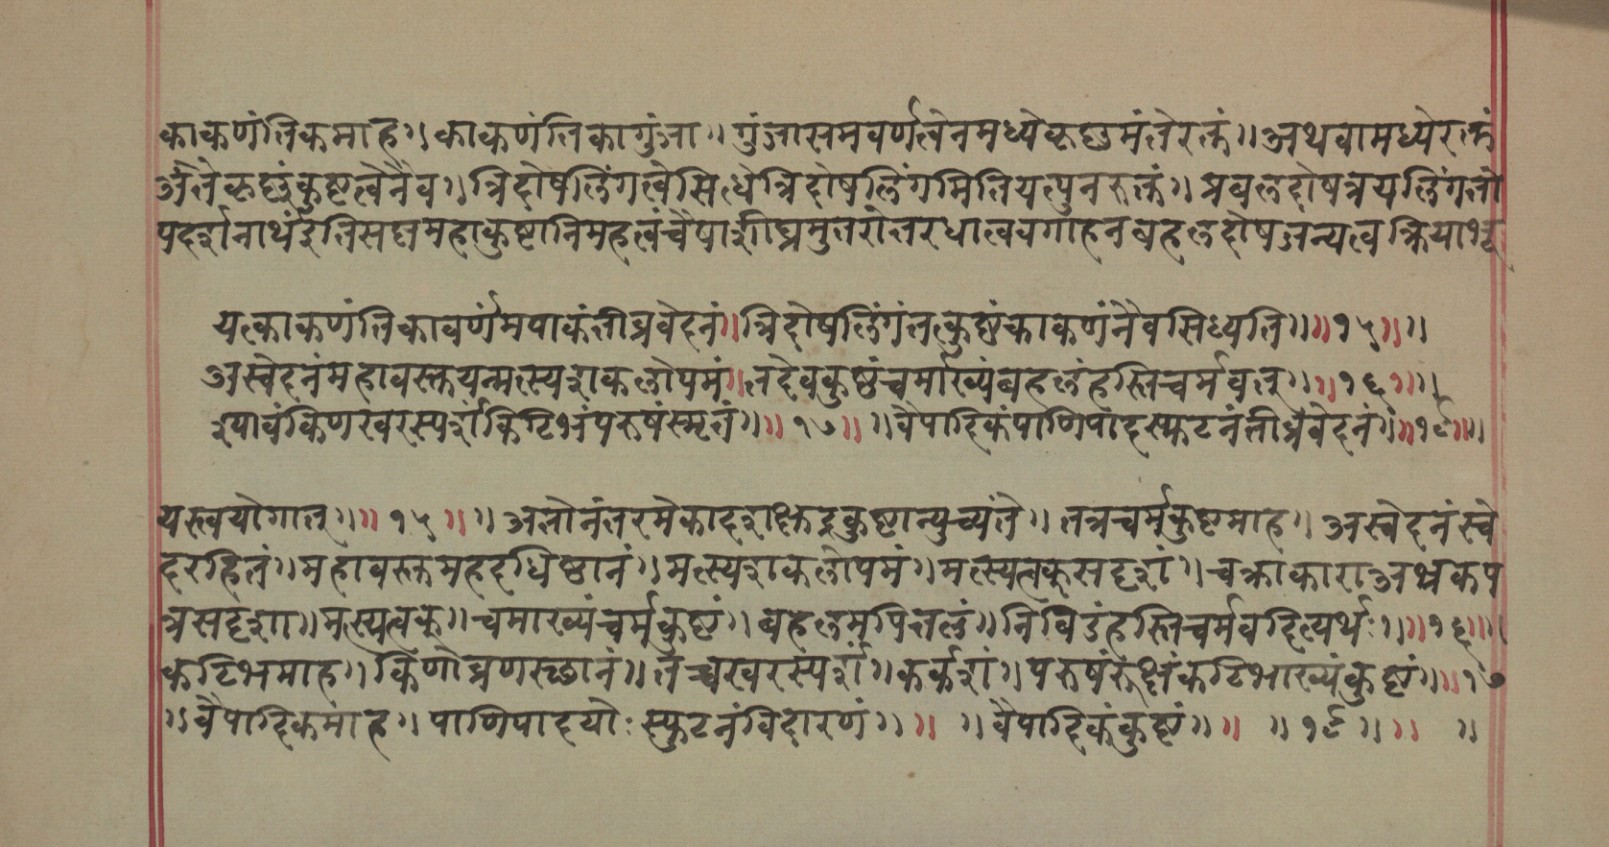 काकणंतिकमाह।। काकणंतिकागुंजा।। गुंजासमवर्णत्वेनमध्येकृष्णमंतेरक्तं।। अथवामध्येरक्तं
अंतेकृष्णंकुष्टत्वेनैव।। त्रिदोषलिंगत्वेसिधेत्रिदोषलिंगमितियत्पुनरुक्तं।। प्रबलदोषत्रयलिंगतो
पदर्शनार्थंइतिसप्तमहाकुष्टानिमहत्वंचैषाशीघ्रमुतरोतरधात्ववगाहनबहलदोषजन्यत्वक्रियाभू
यत्काकणंतिकावर्णमपाकंतीव्रवेदनं।। त्रिदोषलिंगंतत्कुष्टंकाकणंनैवसिध्यति।। ।। १५ ।। ।।
अस्वेदनंमहावस्तुयन्मत्स्यशकलोपमं।। तदेवकुष्ठंचर्माख्यंबहलंहस्तिचर्मवत्।। ।। १६ ।। ।।
श्यावंकिणखरस्पर्शंकिटिभंपरुषंस्मृतं।। ।। १७ ।। ।। वैपादिकंपाणिपादस्फुटनंतीव्रवेदनं।। ।। १८ ।। ।।
यस्त्वयोगात्।। ।। १५ ।। ।। अतोनंतरमेकादशक्षुद्रकुष्टान्युच्यंते।। तत्रचर्मकुष्टमाह।। अस्वेदनंस्वे
दरहितं।। महावस्तुमहदधिष्ठानं।। मत्स्यशकलोपमं।। मत्स्यत्वक्सदृशं।। चक्राकाराअभ्रकप
त्रसदृशा।। मत्स्यत्वक्।। चर्माख्यंचर्मकुष्टं।। बहलमपित्ततलं।। निविडंहस्तिचर्मवदित्यर्थः।। ।। १६ ।। ।।
किटिभमाह।। किणोव्रणस्छानं।। तच्चखरस्पर्शं।। कर्कशं।। परुषंरूक्षंकटिभाख्यंकुष्टं।। ।। १७
।। वैपादिकमाह।। पाणिपादयोः स्फुटनंविदारणं।। ।। ।। वैपादिकंकुष्टं।। ।। ।। १८ ।। ।। ।।